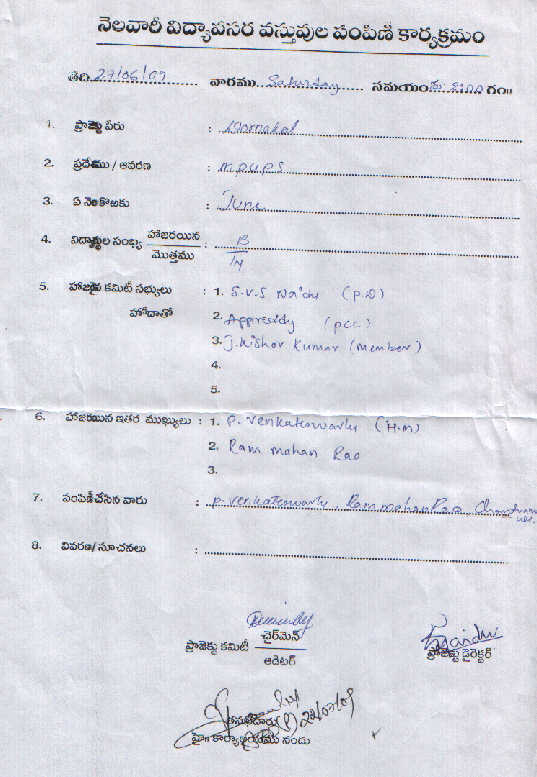 నెలవారీ విద్యావసర వస్తువుల పంపిణీ కార్యక్రమం
తేది 27/06/09 వారము Saturday సమయం 5:00 గం॥
1. ప్రాజెక్టు పేరు :
2. ప్రదేశము / ఆవరణ : M.P.U.P.S
3. ఏ నెల కొఱకు : June
4. విద్యార్థుల సంఖ్య హాజరయిన / మొత్తము : 13 / 14
5. హాజరైన కమిటీ సభ్యులు : 1. S.V.S Naidu (P.D)
హోదాతో 2. Appreddy (PCC.)
3. J. Kishor Kumar (Member)
4.
5.
6. హాజరయిన ఇతర ముఖ్యులు : 1. P. Venkateswarlu (H.M)
2. Ram mohan Rao
3.
7. పంపిణీచేసిన వారు : P. Venkateswarlu, Ram mohan Rao
8. వివరణ/సూచనలు :
చైర్‌మెన్
ప్రాజెక్టు కమిటీ
ఆడిటర్
ప్రాజెక్టు డైరెక్టర్